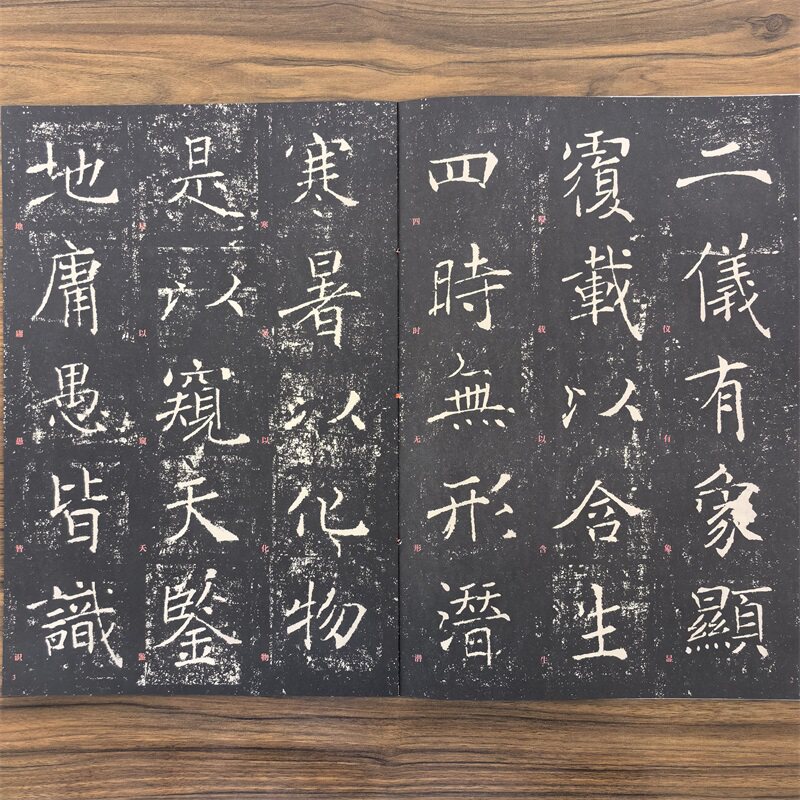 二儀有象顯
二仪有象显
覆載以含生
覆载以含生
四時無形潛
四时无形潜
寒暑以化物
寒暑以化物
是以窺天鑒
是以窥天鉴
地庸愚皆識
地庸愚皆识
3